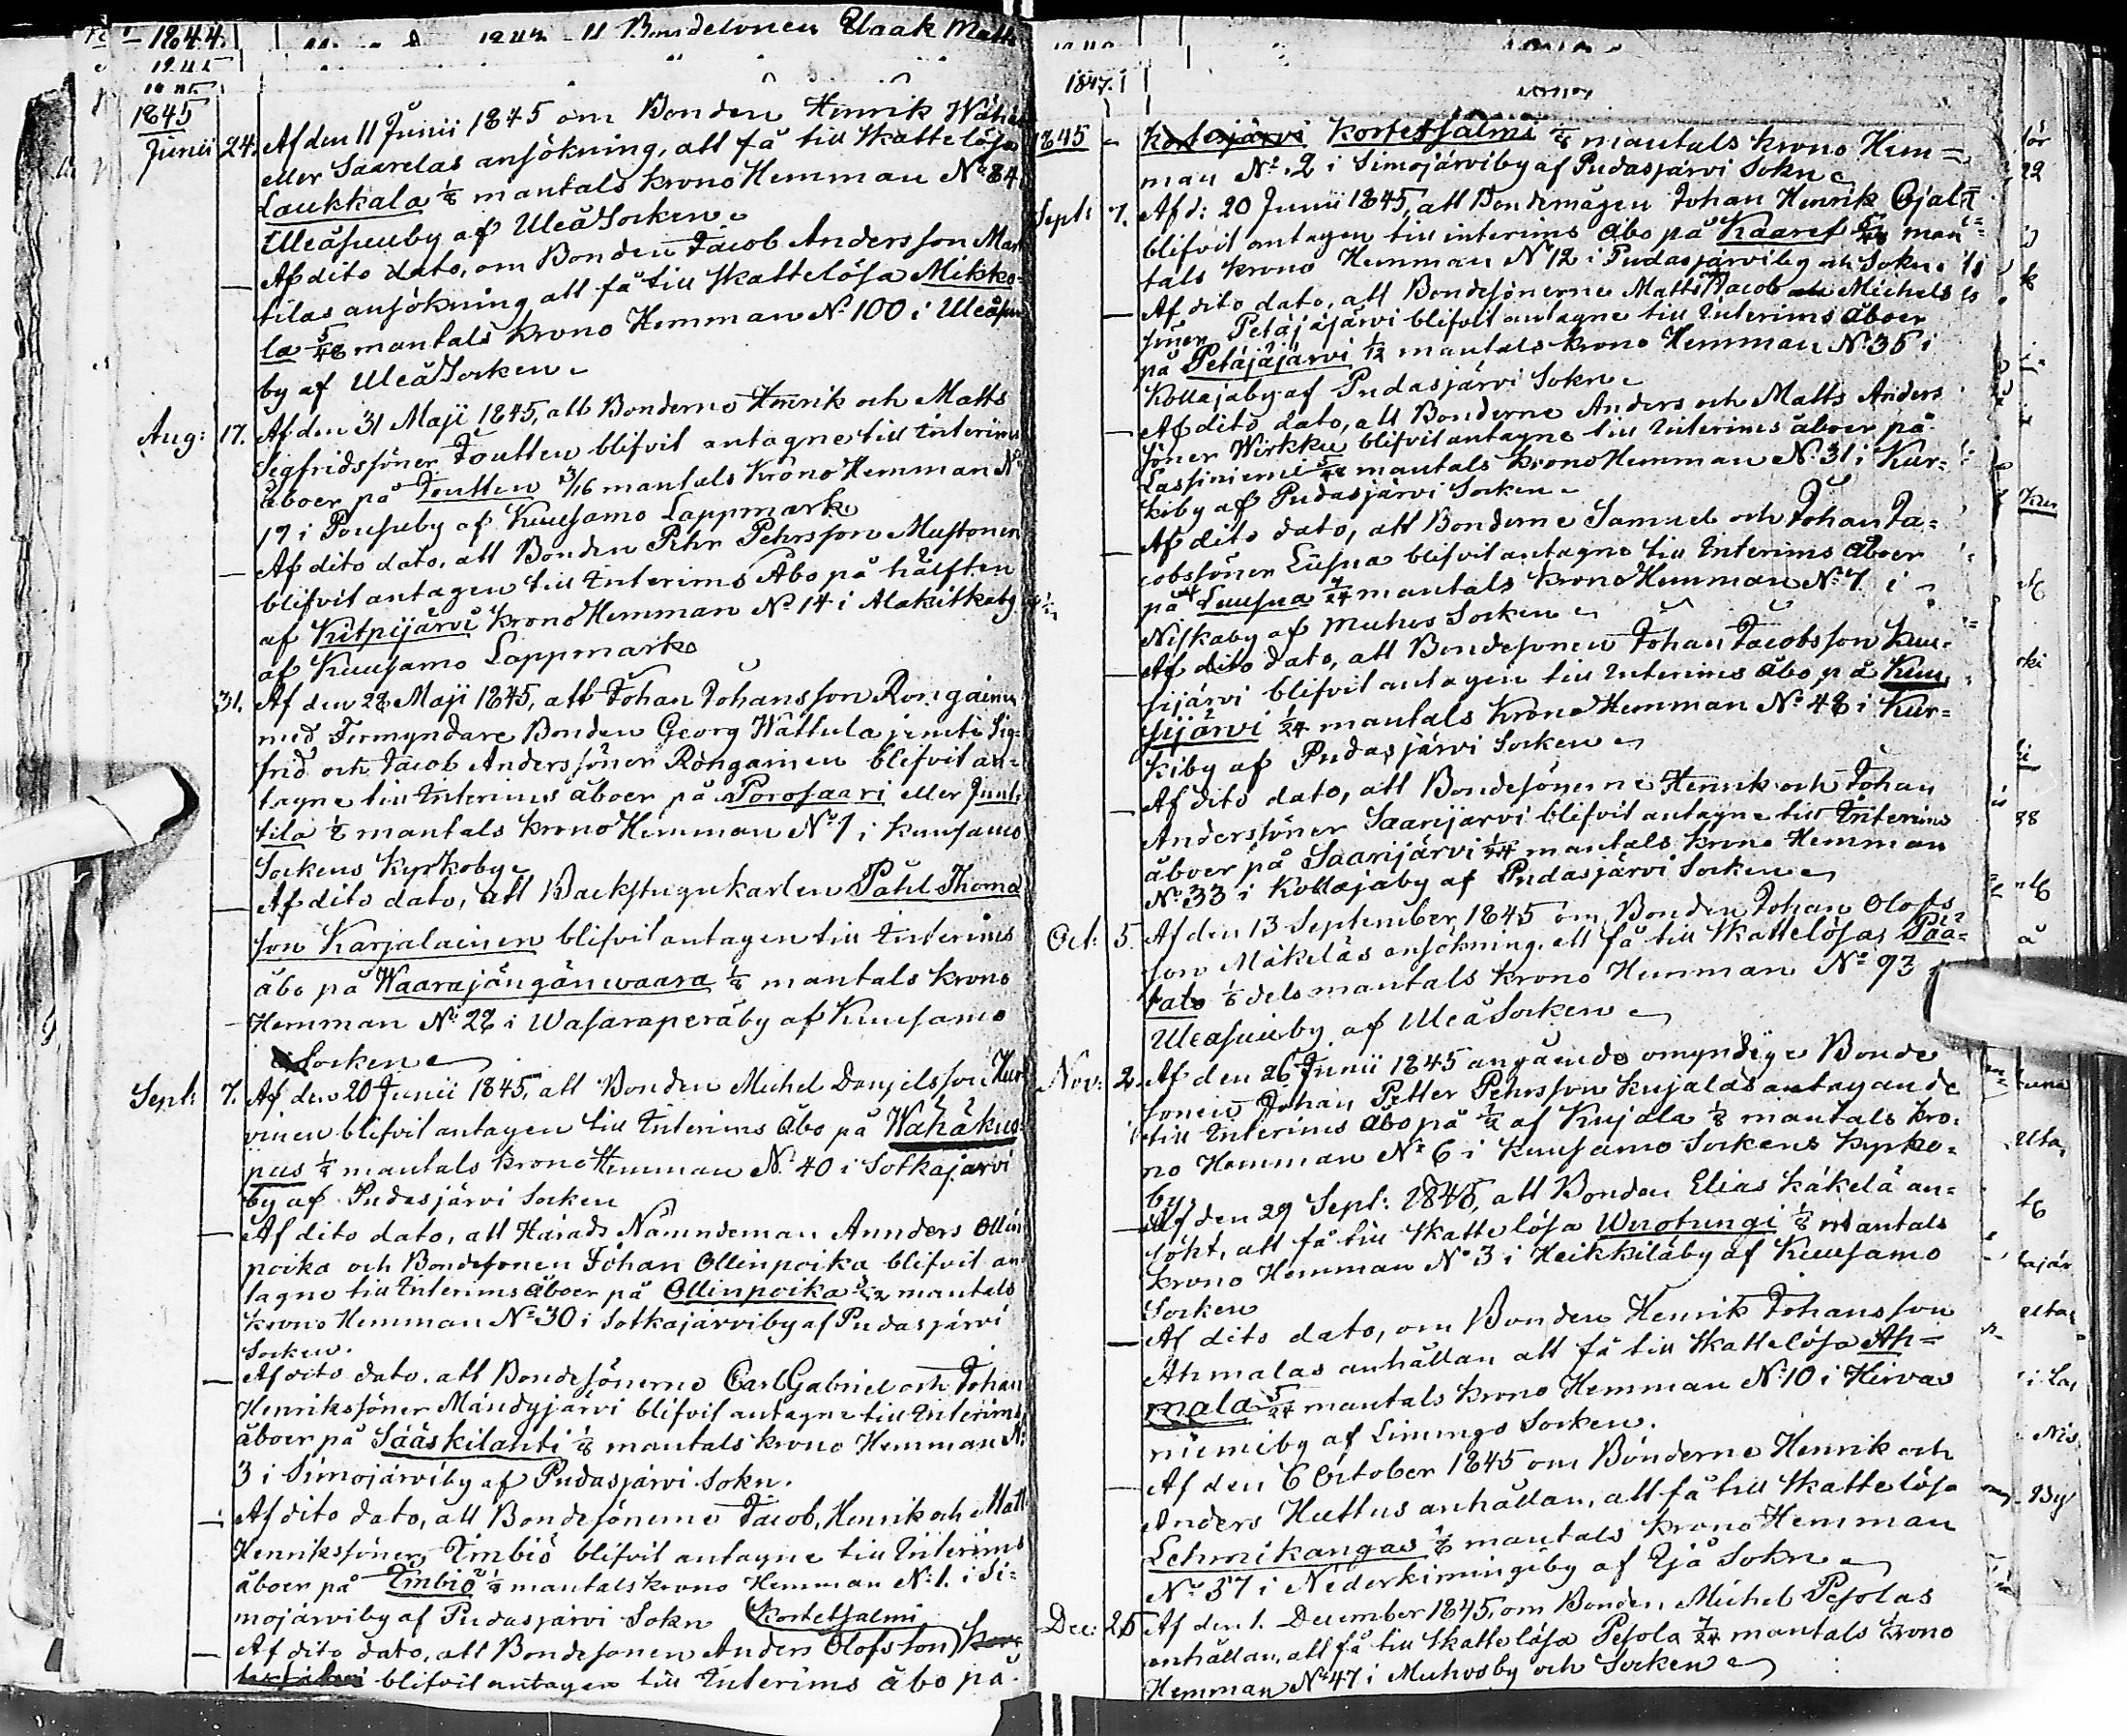 1844.
Bondesonen Isaak Matts
1845
1845
Junii 24. Af den 11 Junii 1845 om Bonden Henrik Wähä
eller Saarelas ansökning, att få till Skatte lösa
Laukkala 1/8 mantals krono Hemman No 84
Uleåsuuby af Uleå Socken
— Af dito dato, om Bonden Jacob Andersson Mar
tilas ansökning att få till Skattelösa Mikko-
la 5/48 mantals krono Hemman No 100 i Uleåsuu
by af Uleå Socken
Aug: 17. Af den 31 Maji 1845, att Bönderne Henrik och Matts
Segfridssöner Toutten blifvit antagne till Interims
åboer på Toutten 3/16 mantals Krono Hemman No
17 i Pousuby af Kuusamo Lappmark
— Af dito dato, att Bonden Pehr Pehrsson Mustonen
blifvit antagen till Interims Åbo på hälften
af Kitpijärvi Krono Hemman No 14 i Alakitkaby
af Kuusamo Lappmark
31. Af den 28 Maji 1845, att Johan Johansson Rongainen
med Förmyndare Bonden Georg Wattula jemte Sig-
frid och Jacob Anderssöner Rongainen blifvit an-
tagne till Interims åboer på Porosaari eller Junt-
tila 1/8 mantals krono Hemman No 1 i Kuusamo
Sockens Kyrkoby
— Af dito dato, att Backstugukarlen Påhl Thomas
son Karjalainen blifvit antagen till Interims
åbo på Waarajängänwaara 1/8 mantals krono
Hemman No 22 i Wasaraperäby af Kuusamo
Socken
Sept: 7. Af den 20 Junii 1845, att Bonden Michel Danjelsson Kur
vinen blifvit antagen till Interims Åbo på Wähäkuo
pus 1/8 mantals krono Hemman No 40 i Sotkajärvi
by af Pudasjärvi Socken
— Af dito dato, att Härads Nämndeman Annders Ollin
poika och Bondesonen Johan Ollinpoika blifvit an
tagne till Interims Åboer på Ollinpoika mantals
krono Hemman No 30 i Sotkajärviby af Pudasjärvi
Socken.
— Af dito dato, att Bondesönerne Carl Gabriel och Johan
Henrikssöner Mändyjärvi blifvit antagne till Interims
åboer på Sääskilahti 1/8 mantals krono Hemman No
3 i Simojärviby af Pudasjärvi Sokn.
— Af dito dato, att Bondesönerne Jacob, Henrik och Matts
Henrikssöner Imbiö blifvit antagne till Interims
åboer på Imbiö 1/8 mantals krono Hemman No 1. i Si-
mojärviby af Pudasjärvi Sokn Kortetsalmi
— Af dito dato, att Bondesonen Anders Olofsson Kor-
blifvit antagen till Interims åbo på
1847.
1845 Kortesjärvi Kortetsalmi 1/8 mantals krono Hem=
man No. 2 i Simojärviby af Pudasjärvi Sokn
Sept: 7. Af d: 20 Junii 1845, att Bondemågen Johan Henrik Ojala
blifvit antagen till interims åbo på Kaaref 5/48 man-
tals krono Hemman N 12 i Pudasjärviby och Sokn.
— Af dito dato, att Bondesönerne Matts Jacob Michels
söner Petäjäjärvi blifvit antagne till Interims åboer
på Petäjäjärvi 1/12 mantals krono Hemman No 35 i
Kollajaby af Pudasjärvi Sokn
— Af dito dato, att Bönderne Anders och Matts Anders
söner Wirkku blifvit antagne till Interims åboer på
Lassiniemi mantals krono Hemman No 31 i Kur-
kiby af Pudasjärvi Socken
— Af dito dato, att Bönderne Samuel och Johan Ja-
cobssöner Luusua blifvit antagne till Interims Åboer
på Luusua 7/24 mantals krono Hemman No 7 i
Niskaby af Muhos Socken
— Af dito dato, att Bondesonen Johan Jacobsson Kuu-
sijärvi blifvit antagen till Interims Åbo på Kuu
sijärvi 1/24 mantals Krono Hemman No 48 i Kur-
kiby af Pudasjärvi Socken
— Af dito dato, att Bondesönerne Henrik och Johan
Anderssöner Saarijärvi blifvit antagne till Interims
åboer på Saarijärvi 1/24 mantals krono Hemman
No 33 i Kollajaby af Pudasjärvi Socken
Oct: 5. Af den 13 September 1845 om Bonden Johan Olofs
son Mäkeläs ansökning, att få till Skattelösa Paa-
talo 1/8 dels mantals krono Hemman No 93
Uleåsuuby af Uleå Socken
Nov: 2. Af den 26 Junii 1845 angående omyndige Bonde
sonen Johan Petter Pehrsson Kujalas antagande
till Interims Åbo på 1/2 af Kujala 1/8 mantals kro-
no Hemman No 6 i Kuusamo Sockens kyrko-
by.
— Af den 29 Sept: 1845, att Bonden Elias Käkelä an-
sökt, att få till Skatte lösa Wuotungi 1/8 mantals
krono Hemman No 3 i Heikkiläby af Kuusamo
Socken
— Af dito dato, om Bonden Henrik Johansson
Ahmalas anhållan att få till Skattelösa Ah=
mala 5/24 mantals krono Hemman No 10 i Hirvas
niemiby af Limingo Socken.
— Af den 6 October 1845 om Bönderne Henrik och
Anders Huttus anhållan, att få till Skatte lösa
Lehmikangas 1/8 mantals krono Hemman
No 37 i Nederkimingeby af Ijå Sokn
Dec: 25 Af den 1. December 1845, om Bonden Michel Pesolas
anhållan, att få till Skatte lösa Pesola 7/24 mantals krono
Hemman No 47 i Muhosby och Socken